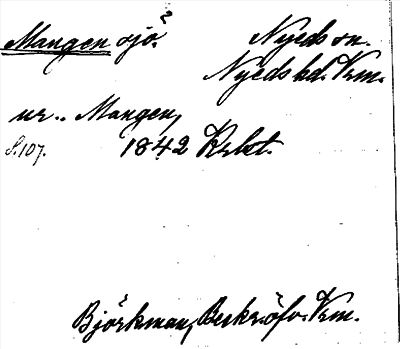 Mangen sjö? Nyeds sn.
Nyeds hd. Vrm.
ur.. Mangen,
S.107. 1842 Krbt.
Björkman, Beskr. öfv. Vrm.